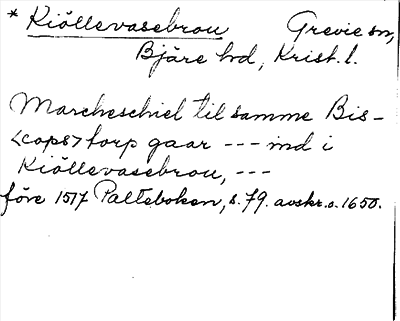 * Kiöllevasebrou Grevie sn,
Bjäre hd, Krist. l.
Marcheschiel til samme Bis-
<cops>torp gaar --- ind i
Kiöllevasebrou, ---
före 1517 Palteboken, s. 79. avskr. o. 1650.